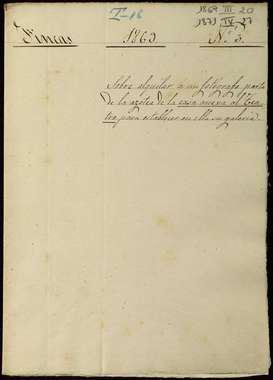 I-16
1869 III 20
1871 IV 27
Fincas 1869 N.º 3.
Sobre alquilar á un fotógrafo parte
de la azotea de la casa nueva al Tea-
tro para establecer en ella su galería.